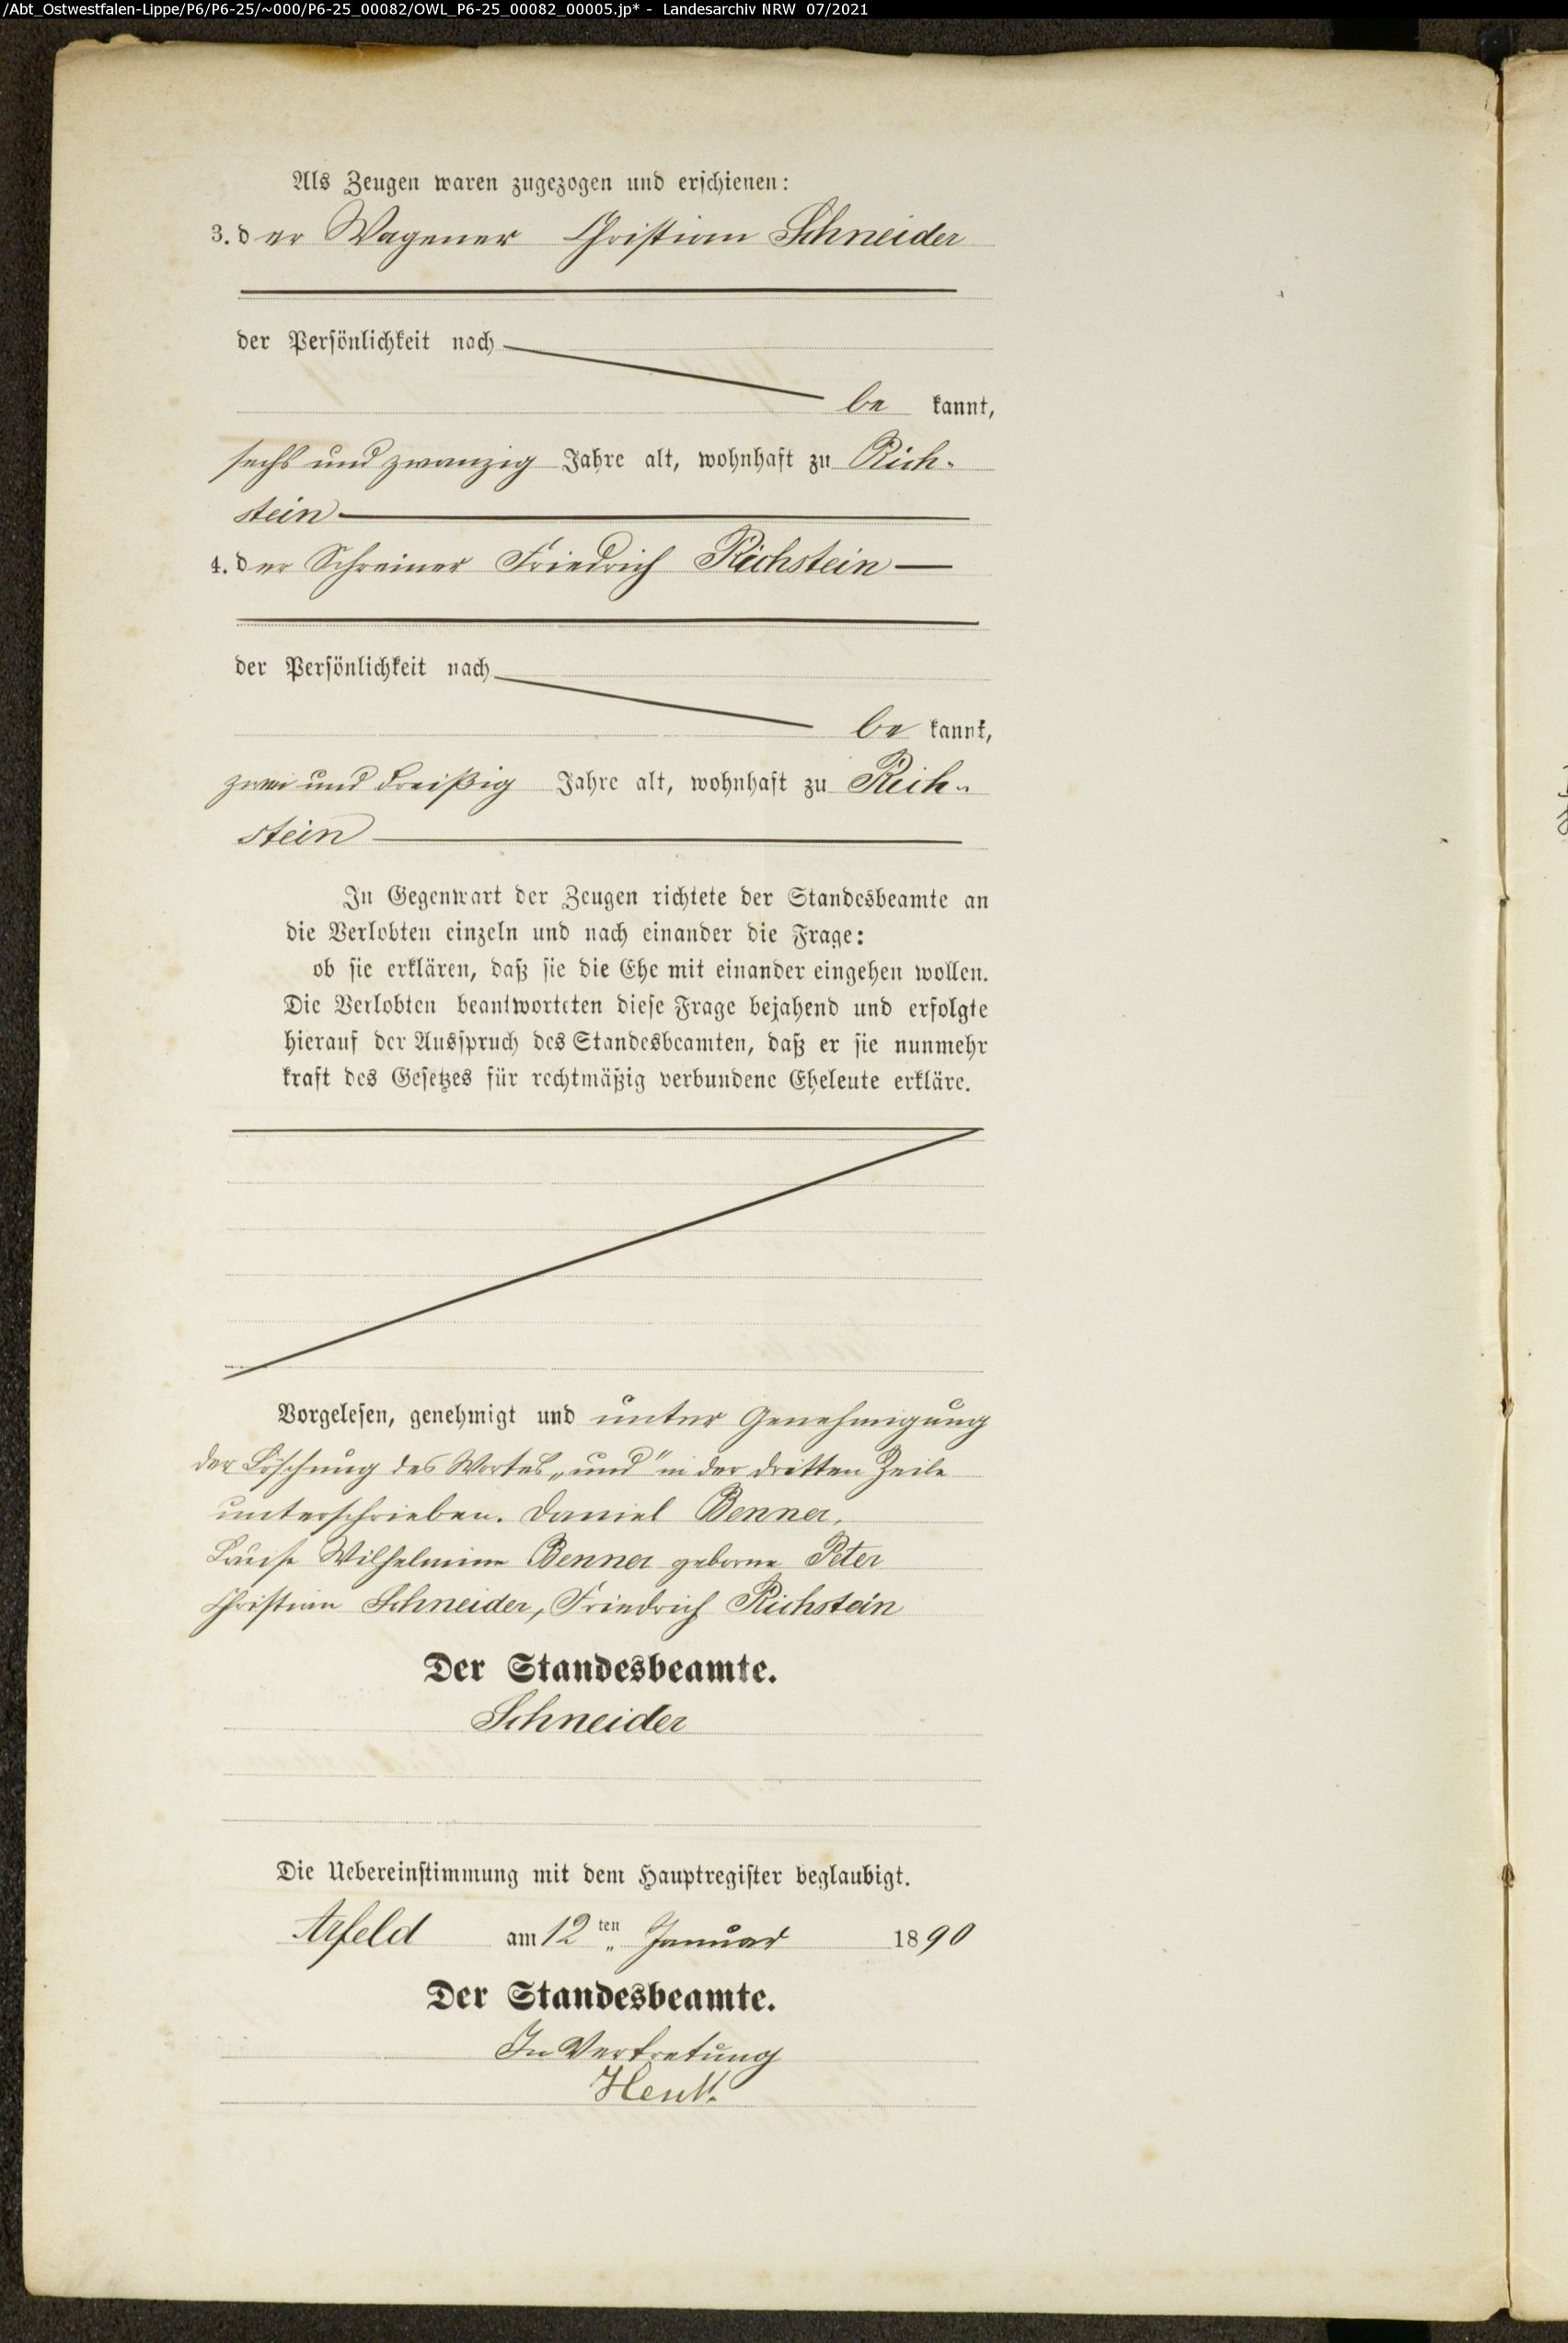 /Abt_Ostwestfalen-Lippe/P6/P6-25/~000/P6-25_00082/OWL_P6-25_00082_00005.jp* - Landesarchiv NRW 07/2021
Als Zeugen waren zugezogen und erschienen:
3. der Wagener Christian Schneider
der Persönlichkeit nach
be kannt,
sechs und zwanzig Jahre alt, wohnhaft zu Rich-
stein
4. der Schreiner Friedrich Richstein
der Persönlichkeit nach
be kannt,
zwei und dreißig Jahre alt, wohnhaft zu Rich-
stein
In Gegenwart der Zeugen richtete der Standesbeamte an
die Verlobten einzeln und nach einander die Frage:
ob sie erklären, daß sie die Ehe mit einander eingehen wollen.
Die Verlobten beantworteten diese Frage bejahend und erfolgte
hierauf der Ausspruch des Standesbeamten, daß er sie nunmehr
kraft des Gesetzes für rechtmäßig verbundene Eheleute erkläre.
Vorgelesen, genehmigt und unter Genehmigung
der Löschung des Wortes „und" in der dritten Zeile
unterschrieben. Daniel Benner,
Louise Wilhelmine Benner geborne Peter
Christian Schneider, Friedrich Richstein
Der Standesbeamte.
Schneider
Die Uebereinstimmung mit dem Hauptregister beglaubigt.
Arfeld am 12ten Januar 1890
Der Standesbeamte.
In Vertretung